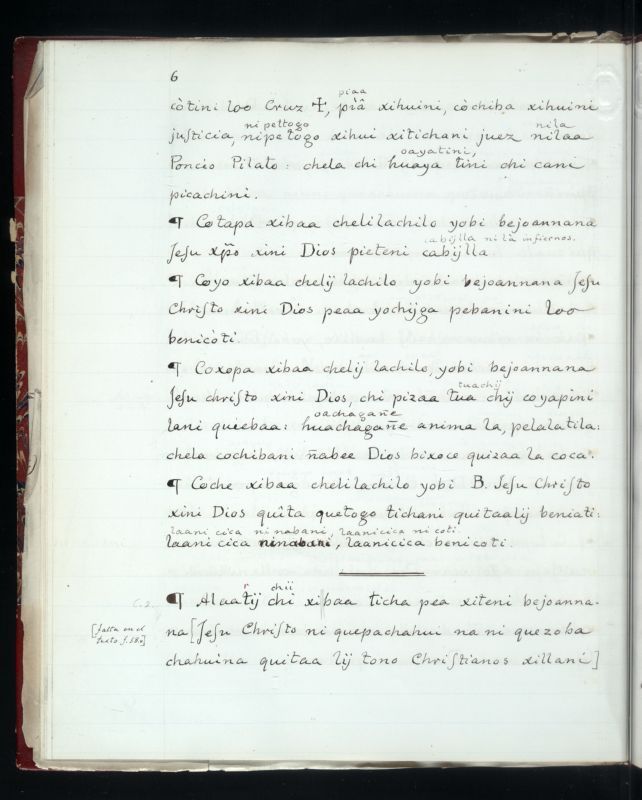 6
piaa
còtini loo Cruz ✠, pĩa xihuini, còchiba xihuini
ni pettogo nila
juſticia, nipe togo xihui xitichani juez nilaa
oayatini,
Poncio Pilato: chela chi huaya tini chi cani
picachini.
¶ Cotapa xibaa chelilachilo yobi bejoannana
cabijlla ni là infiernos.
Jeſu xp̃o xini Dios pieteni cabijlla
¶ Coyo xibaa chelij lachilo yobi bejoannana Jeſu
Chriſto xini Dios peaa yochijga pebanini loo
benicòti.
¶ Coxopa xibaa chelij lachilo, yobi bejoannana
tuachij
Jeſu chriſto xini Dios, chi pizaa tua chij coyapini
oachagañe
lani quiebaa: huachagañe anima la, pelalatila:
chela cochibani ñabee Dios bixoce quizaa la coca.
¶ Coche xibaa chelilachilo yobi B. Jeſu Chriſto
xini Dios quita quetogo tichani quitaalij beniati:
laani cica ni nabani, laanicica ni coti
laani cica ninabani, laanicica benicoti.
chii
C. 2. ¶ Alaatij chi xibaa ticha pea xiteni bejoanna-
[falta en el na [Jeſu Chriſto ni quepachahui na ni quezoba
texto. f. 58v]
chahuina quitaa lij tono Chriſtianos xillani]